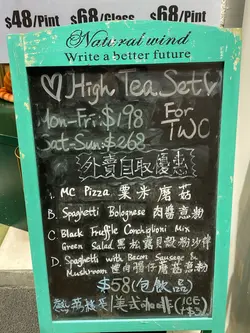 $48/Pint $68/Glass $68/Pint
Natural wind
Write a better future
♡High Tea Set♡
Mon-Fri: $198 For
Sat-Sun: $268 TWC
外賣自取優惠
MC Pizza 粟米蘑菇
B. Spaghetti Bolognese 肉醬意粉
C. Black Truffle Conchiglioni Mix
Green Salad 黑松露貝殼粉沙律
D. Spaghetti with Bacon Sausage &
Mushroom 煙肉腸仔蘑菇意粉
$58(包飲品)
美式咖啡(ICE